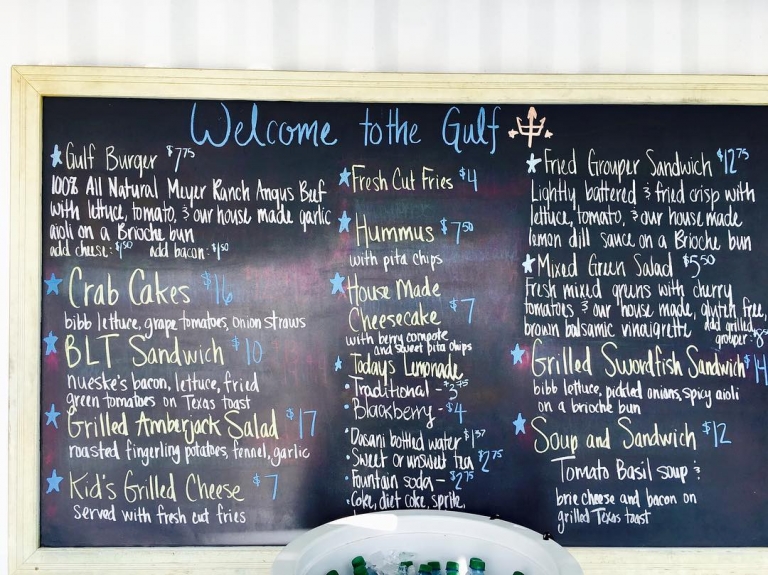 Welcome to the Gulf
Gulf Burger $7 75
100% All Natural Meyer Ranch Angus Beef
with lettuce, tomato, & our house made garlic
aioli on a Brioche bun
add cheese: $1 50 add bacon: $1 50
Crab Cakes $16
bibb lettuce, grape tomatoes, onion straws
BLT Sandwich $10
nueske's bacon, lettuce, fried
green tomatoes on Texas toast
Grilled Amberjack Salad $17
roasted fingerling potatoes, fennel, garlic
Kid's Grilled Cheese $7
Served with fresh cut fries
Fresh Cut Fries $4
Hummus $7 50
with pita chips
House Made
Cheesecake $7
with berry compote
and sweet pita chips
Today's Lemonade
• Traditional - $3 75
• Blackberry - $4
• Dasani bottled water $1 37
• Sweet or unsweet tea $2 75
• Fountain soda - $2 75
• Coke, diet coke, sprite,
Fried Grouper Sandwich $12 75
Lightly battered & fried crisp with
lettuce, tomato, & our house made
lemon dill sauce on a Brioche bun
Mixed Green Salad $5 50
Fresh mixed greens with cherry
tomatoes & our house made, gluten free,
brown balsamic vinaigrette add grilled
grouper:
Grilled Swordfish Sandwich $14
bibb lettuce, pickled onions, spicy aioli
on a brioche bun
Soup and Sandwich $12
Tomato Basil soup &
brie cheese and bacon on
grilled Texas toast